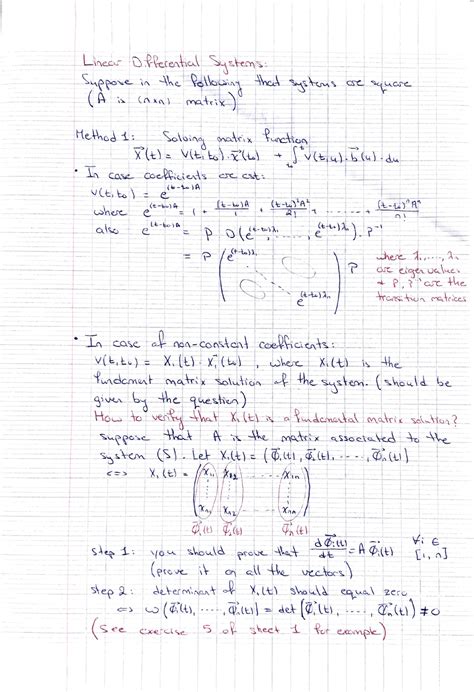 Linear Differential Systems:
Suppose in the following that systems are square
(A is (n×n) matrix)
Method 1: Solving matrix function
X⃗(t) = V(t,t₀)·x⃗(t₀) + ∫ₜ₀ᵗ V(t,u)·b⃗(u)·du
• In case coefficients are cst:
V(t,t₀) = e^((t-t₀)A)
where e^((t-t₀)A) = 1 + (t-t₀)A/1 + (t-t₀)²A²/2! + ...... + (t-t₀)ⁿAⁿ/n!
also e^((t-t₀)A) = P D(e^((t-t₀)λ₁), ....., e^((t-t₀)λₙ)). P⁻¹
= P (e^((t-t₀)λ₁) ... e^((t-t₀)λₙ)) P
where λ₁,...,λₙ
are eigen values
+ P, P⁻¹ are the
transition matrices
• In case of non-constant coefficients:
V(t,t₀) = X₁(t)·X₁⁻¹(t₀), where X₁(t) is the
fundament matrix solution of the system. (should be
given by the question)
How to verify that X₁(t) is a fundamental matrix solution?
suppose that A is the matrix associated to the
system (S). Let X₁(t) = (φ⃗₁(t), φ⃗₂(t), ..., φ⃗ₙ(t))
<=> X₁(t) = (x₁₁ ... x₁ₙ
xₙ₁ xₙ₂ ... xₙₙ)
φ⃗₁(t) φ⃗₂(t) φ⃗ₙ(t)
step 1: you should prove that dφ⃗ᵢ(t)/dt = A φ⃗ᵢ(t) ∀i ∈ [1, n]
(prove it on all the vectors)
step 2: determinant of X₁(t) should equal zero
<=> W(φ⃗₁(t), ..., φ⃗ₙ(t)) = det(φ⃗₁(t), ..., φ⃗ₙ(t)) ≠ 0
(See exercise 5 of sheet 1 for example)